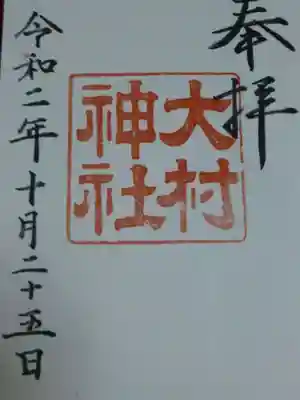 奉拝
大村
神社
令和二年十月二十五日